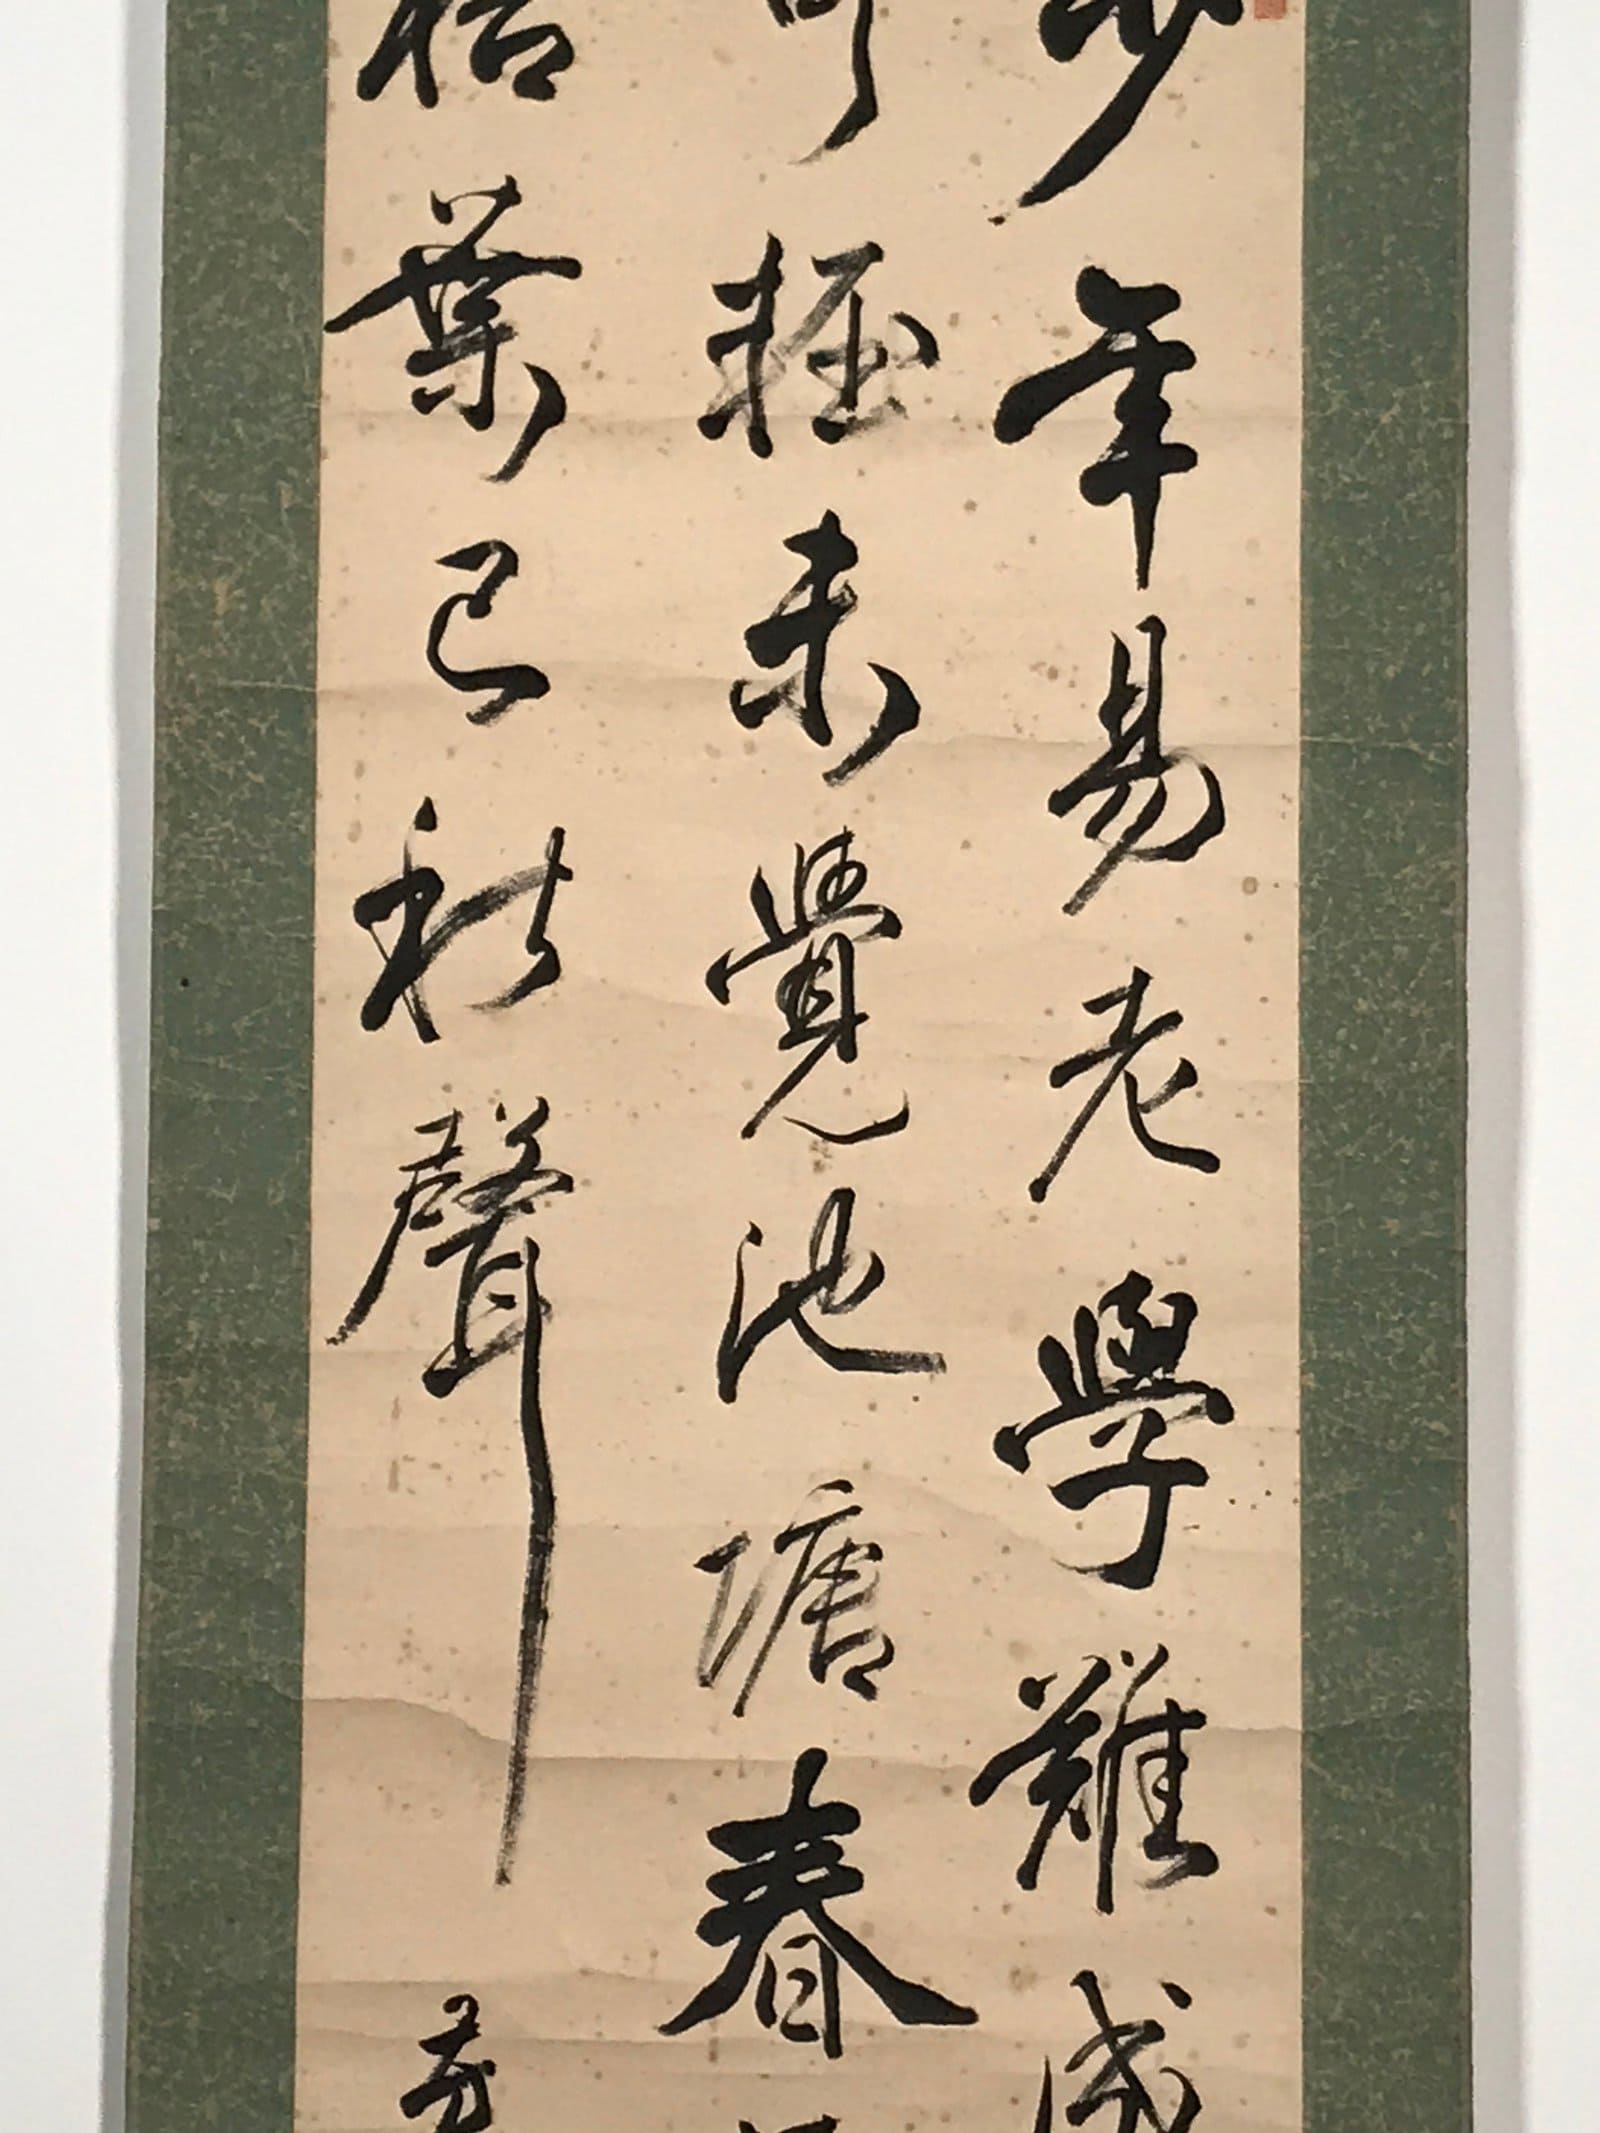 少年易老學難成
可輕未覺池塘春
梧葉已秋聲